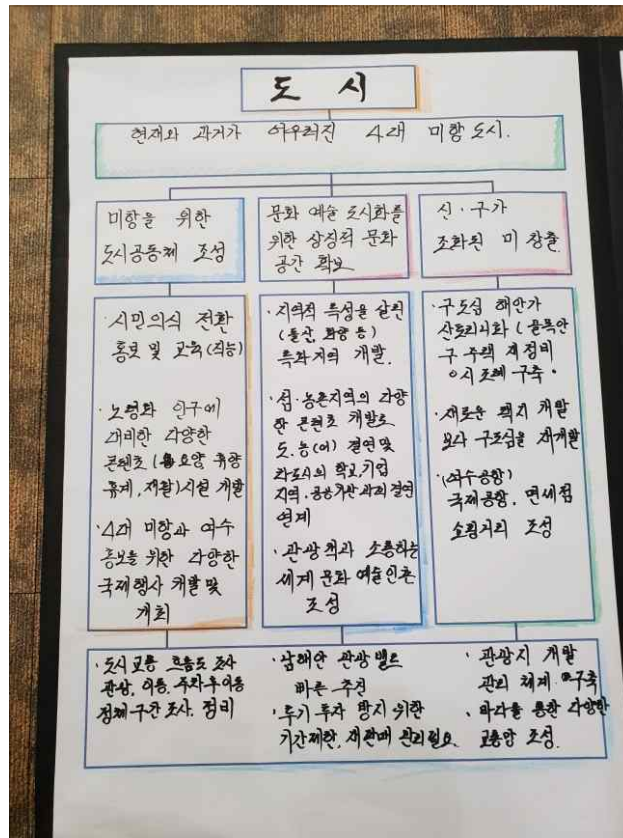 도 시
현재와 과거가 어우러진 4대 미항 도시.
미항을 위한
도시공동체 조성
문화 예술 도시화를
위한 상징적 문화
공간 확보
신·구가
조화된 미 창출
·시민의식 전환
홍보 및 교육 (직능)
·노령화 인구에
대비한 다양한
콘텐츠 (요양 휴양
휴게, 재활) 시설 개발
·4대 미항과 여수
홍보를 위한 다양한
국제행사 개발 및
개최
·지역적 특성을 살린
(돌산, 화양 등)
특화지역 개발.
·섬·농촌지역의 다양
한 콘텐츠 개발로
도.농(어) 결연 및
타도시의 학교기업
지역, 공공기관과의 결연
연계
·관광객과 소통하는
세계 문화 예술인촌
조성
·구도심 해안가
산토리니화 (골목안
구 주택 재정비
시 조례 구축
·새로운 택지 개발
보다 구도심을 재개발
·(여수공항)
국제공항, 면세점
쇼핑거리 조성
·도시교통 흐름도 조사
관상, 이동, 주차후이동
정체구간 조사, 정비
·남해안 관광벨트
빠른 추진
·투기 투자 방지 위한
기간제한, 재판매 관리필요.
·관광지 개발
관리 체계 구축
·바다를 통한 다양한
교통망 조성.